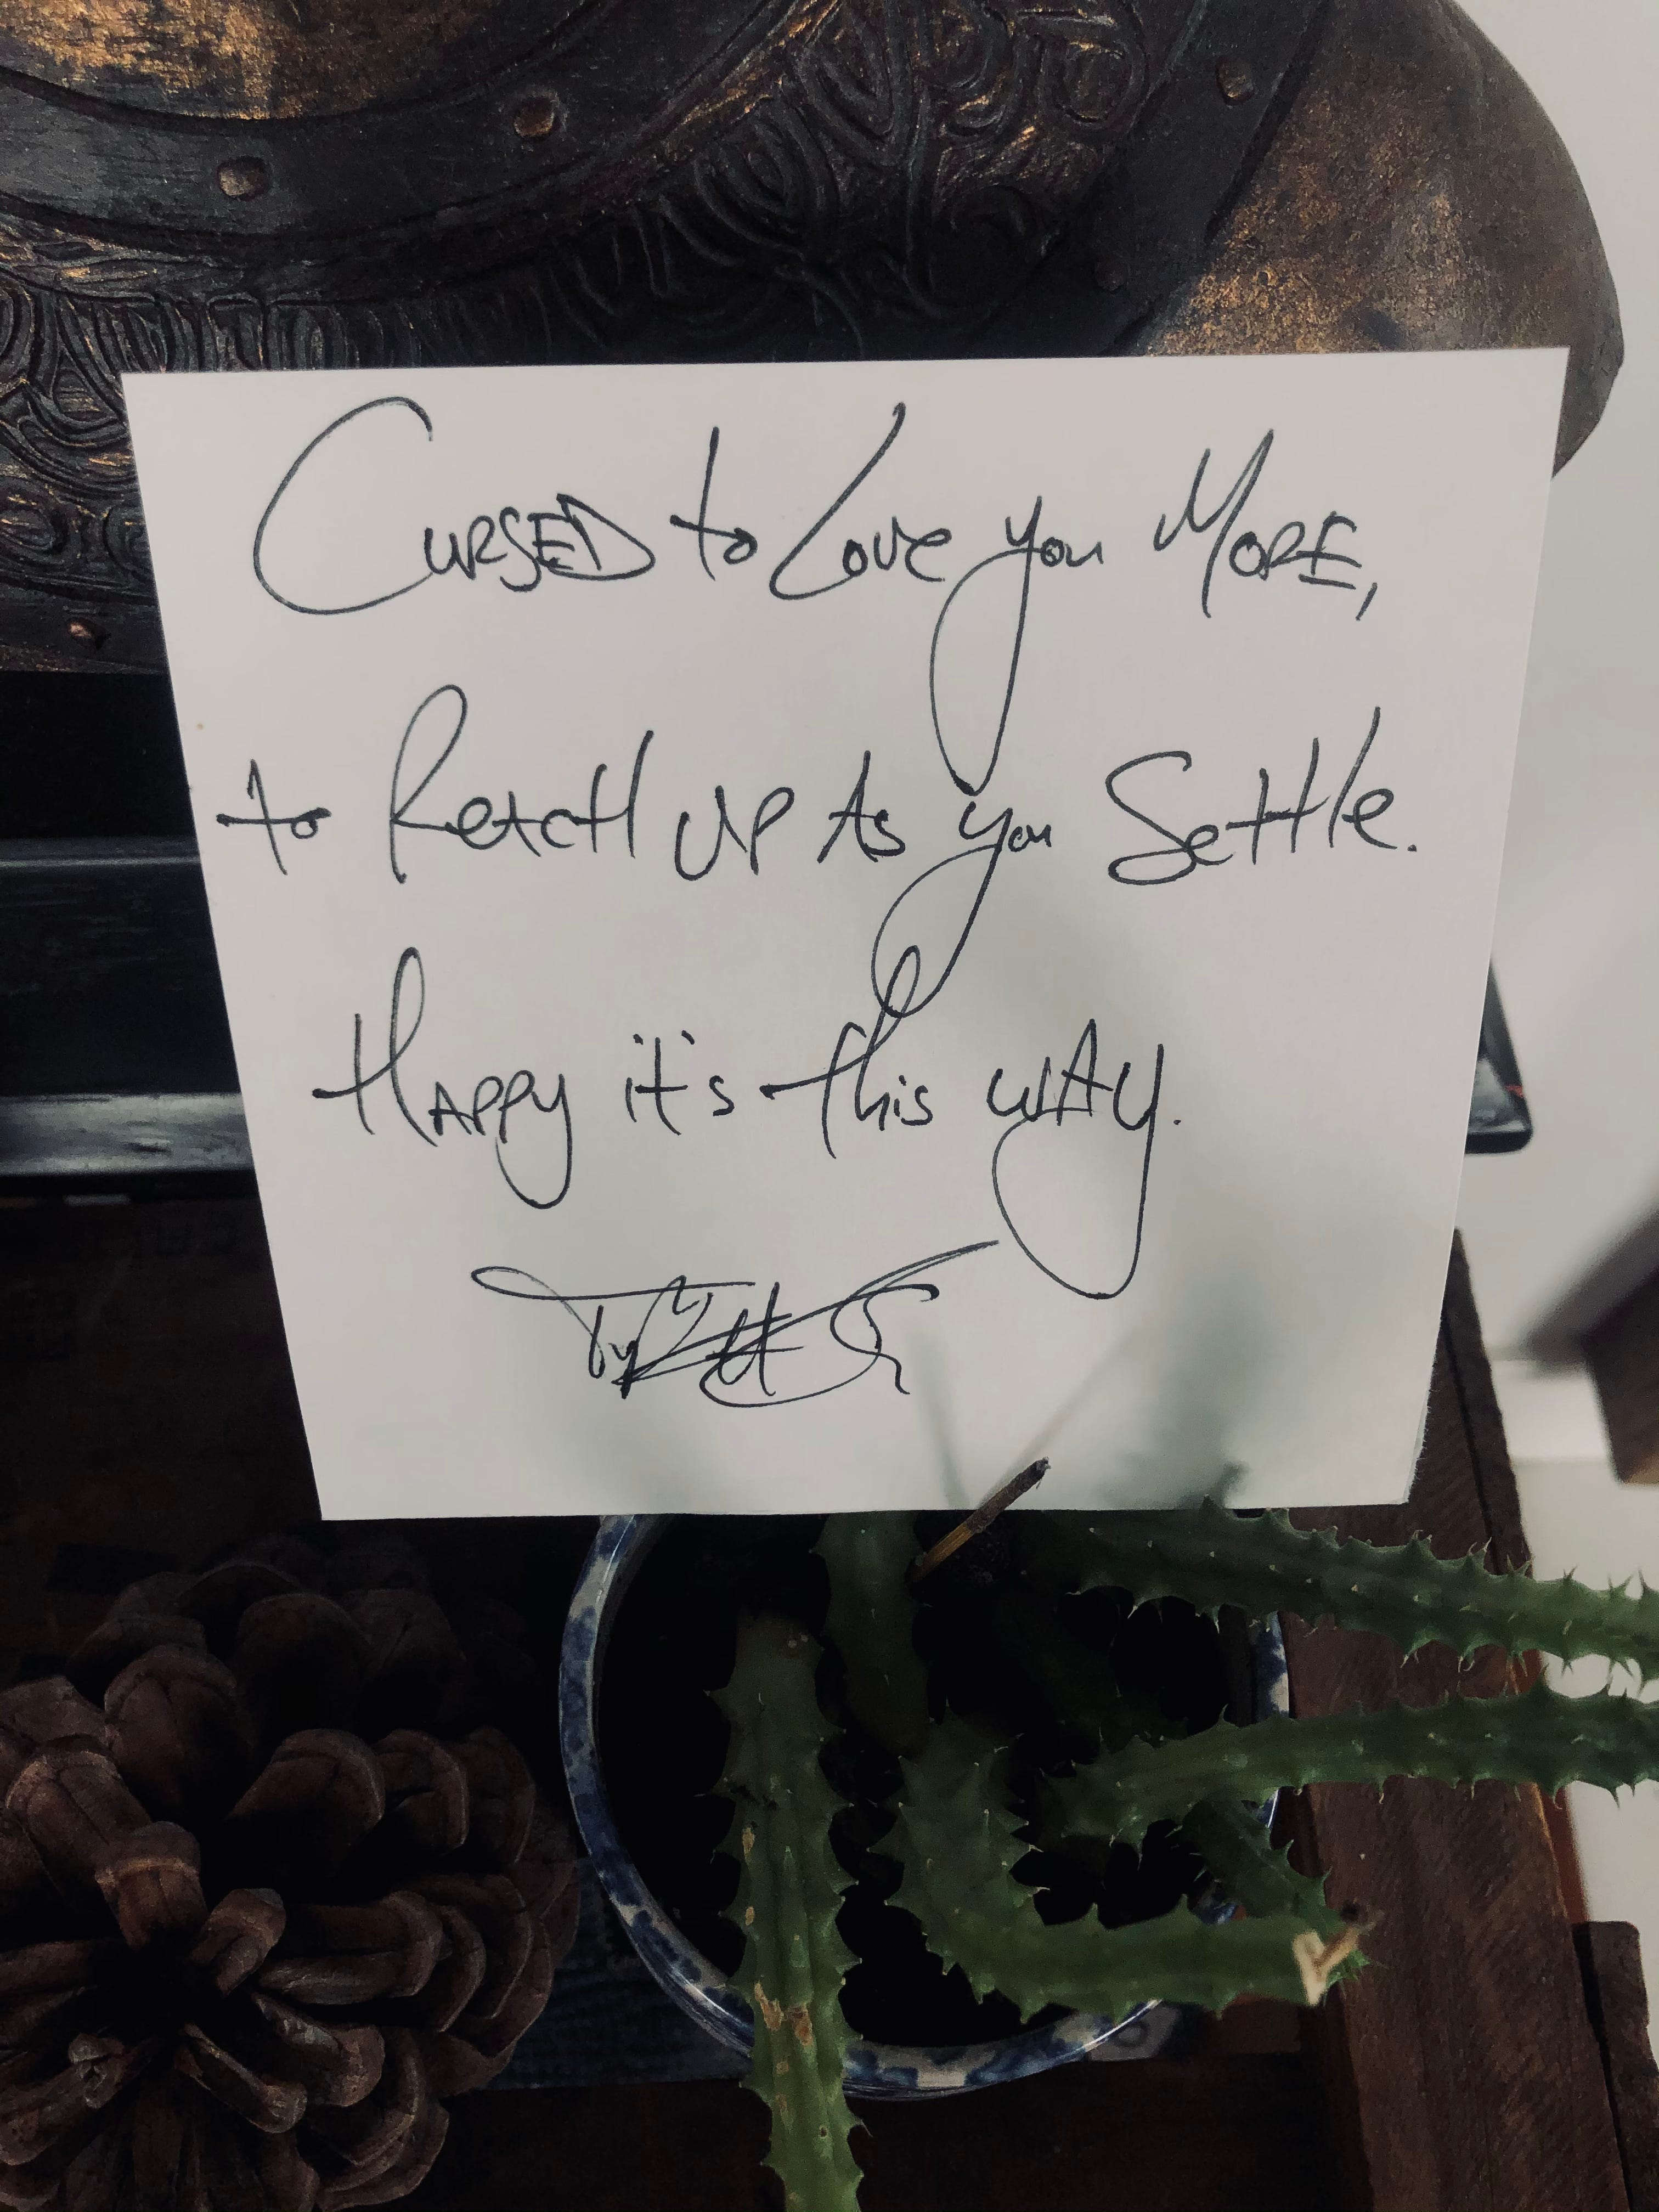 Cursed to Love you More,
to Reach up As you Settle.
Happy it's this way.